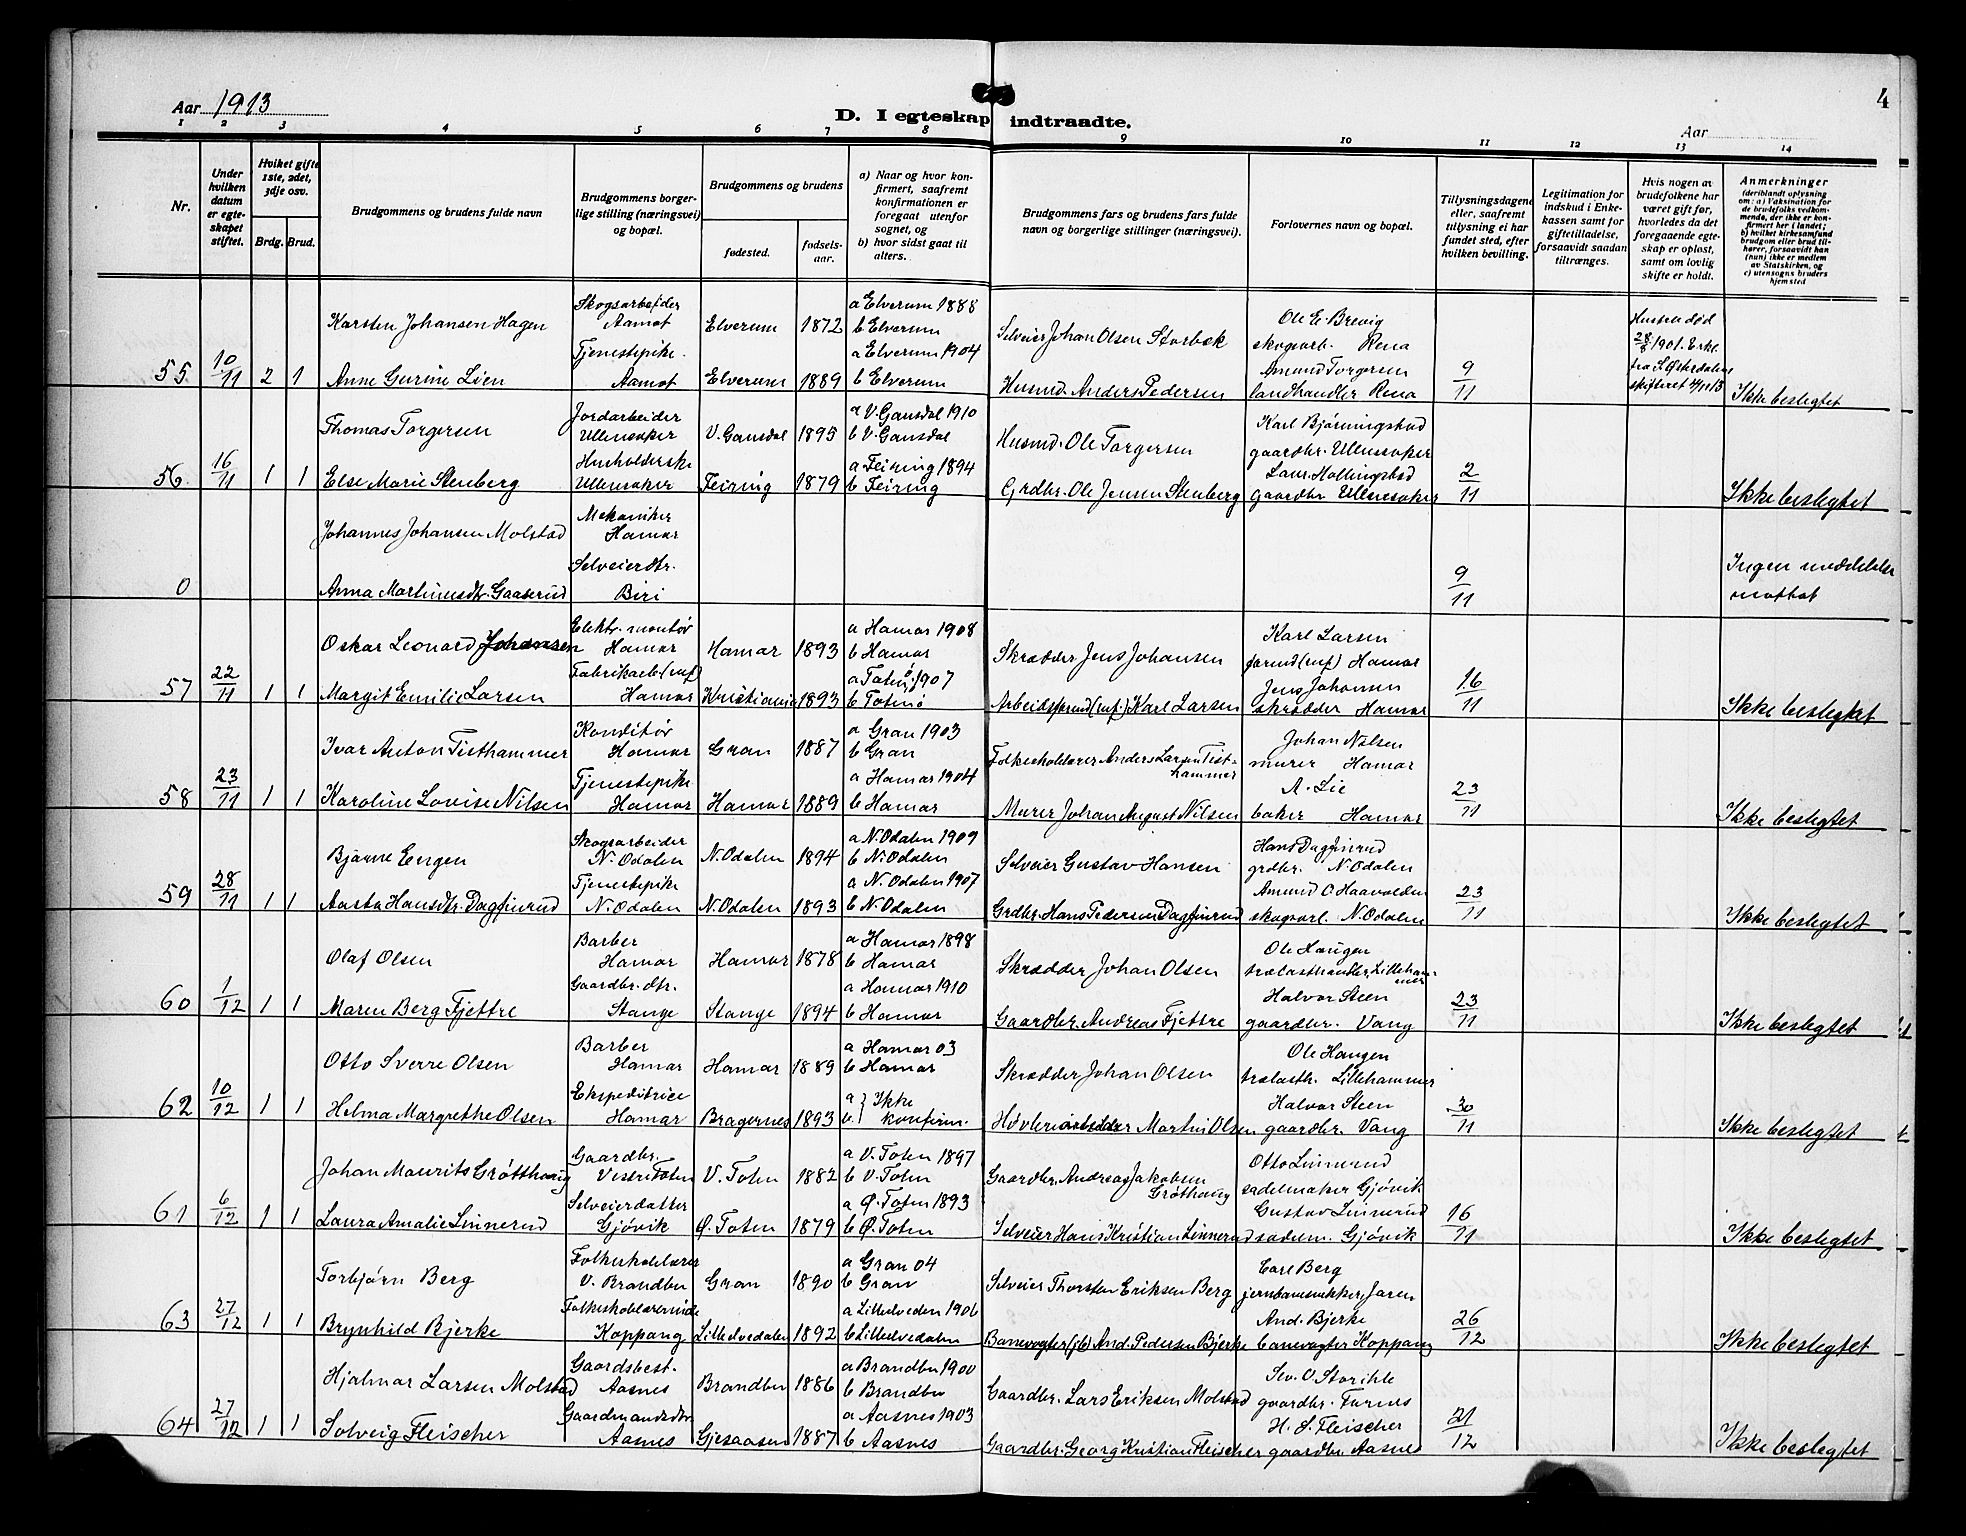 Aar 1913
D. I egteskap indtraadte.
Aar
4
1 2 3 4 5 6 7 8 9 10 11 12 13 14
Nr.
Under hvilken datum er egteskapet stiftet.
Hvilket gifte 1ste, 2det, 3dje osv.
Brdg. Brud.
Brudgommens og brudens fulde navn
Brudgommens borgerlige stilling (næringsvei) og bopæl.
Brudgommens og brudens
fødested.
fødselsaar.
a) Naar og hvor konfirmert, saafremt konfirmationen er foregaat utenfor sognet, og
b) hvor sidst gaat til alters.
Brudgommens fars og brudens fars fulde navn og borgerlige stillinger (næringsvei).
Forlovernes navn og bopæl.
Tillysningsdagene eller, saafremt tillysning ei har fundet sted, efter hvilken bevilling.
Legitimation for indskud i Enkekassen samt for giftetilladelse, forsaavidt saadan tiltrænges.
Hvis nogen av brudefolkene har været gift før, hvorledes da det foregaaende egteskap er opløst, samt om lovlig skifte er holdt.
Anmerkninger
(deriblandt oplysning om: a) Vaksination for de brudefolks vedkommende, der ikke er konfirmert her i landet;
b) hvilket kirkesamfund brudgom eller brud tilhører, forsaavidt han (hun) ikke er medlem av Statskirken, og
c) utensogns bruders hjemsted
Karsten Johansen Hagen Skogsarbeider Aamot Elverum 1872 a Elverum 1888 b Elverum Selveier Johan Olsen Storbæk Ole E. Brevig skogsarb. Rena Hustru død 28/8 1901. Erkl. fra S. Østerdalens skifteret 4/11 13
55 10/11 2 1 Anne Gurine Lien Tjenestepike Aamot Elverum 1889 a Elverum 1904 b Elverum Husmd. Anders Pedersen Amund Torgersen landhandler Rena 9/11 Ikke beslegtet
Thomas Torgersen Jordarbeider Ullensaker V. Gausdal 1895 a V. Gausdal 1910 b V. Gausdal Husmd. Ole Torgersen Karl Bjørningstad gaardbr. Ullensaker
56 16/11 1 1 Else Marie Stenberg Husholderske Ullensaker Feiring 1879 a Feiring 1894 b Feiring Grdbr. Ole Jensen Stenberg Laur. Hollingstad gaardbr Ullensaker 2/11 Ikke beslegtet
Johannes Johansen Molstad Mekaniker Hamar
0 Anna Martinusdtr. Gaaserud Selveierdtr. Biri 9/11 Ingen meddelelse mottat
Oskar Leonard Johansen Elektr. montør Hamar Hamar 1893 a Hamar 1908 b Hamar Skrædder Jens Johansen Karl Larsen formd (uf) Hamar
57 22/11 1 1 Margit Emilie Larsen Fabrikarb (uf) Hamar Kristiania 1893 a Totenø 1907 b Totenø Arbeidsformd (uf.) Karl Larsen Jens Johansen skrædder Hamar 16/11 Ikke beslegtet
Ivar Anton Tisthammer Konditor Hamar Gran 1887 a Gran 1903 b Gran Folkeskolelærer Anders Larsen Tisthammer Johan Nilsen murer Hamar
58 23/11 1 1 Karoline Lovise Nilsen Tjenestepike Hamar Hamar 1889 a Hamar 1904 b Hamar Murer Johan August Nilsen A. Lie baker Hamar 23/11 Ikke beslegtet
Bjarne Engen Skogsarbeider N. Odalen N. Odalen 1894 a N. Odalen 1909 b N. Odalen Selveier Gustav Hansen Hans Dagfinrud grdbr. N. Odalen
59 28/11 1 1 Aasta Hansdtr. Dagfinrud Tjenestepike N. Odalen N. Odalen 1893 a N. Odalen 1907 b N. Odalen Grdbr. Hans Pedersen Dagfinrud Amund O. Haavelden skogsarb. N. Odalen 23/11 Ikke beslegtet
Olaf Olsen Barber Hamar Hamar 1878 a Hamar 1898 b Hamar Skrædder Johan Olsen Ole Haugen trælasthandler, Lillehammer
60 1/12 1 1 Maren Berg Fjetre Gaardbr. dtr. Stange Stange 1894 a Hamar 1910 b Hamar Gaardbr. Andreas Fjetre Halvor Steen gaardbr. Vang 23/11 Ikke beslegtet
Otto Sverre Olsen Barber Hamar Hamar 1889 a Hamar 03 b Hamar Skrædder Johan Olsen Ole Haugen trælasth. Lillehammer
62 10/12 1 1 Helma Margrethe Olsen Ekspeditrice Hamar Bragernes 1893 a b } Ikke konfirm. Høvleriarbeider Martin Olsen Halvor Steen gaardbr. Vang 30/11 Ikke beslegtet
Johan Maurits Grøtthaug Gaardbr. Vestre Toten V. Toten 1882 a V. Toten 1897 b V. Toten Gaardbr. Andreas Jakobsen Grøthaug Otto Linnerud sadelmaker Gjøvik
61 6/12 1 1 Laura Amalie Linnerud Selveierdatter Gjøvik Ø. Toten 1879 a Ø. Toten 1893 b Ø. Toten Selveier Hans Kristian Linnerud Gustav Linnerud sadelm. Gjøvik 16/11 Ikke beslegtet
Torbjørn Berg Folkeskolelærer V. Brandbu Gran 1890 a Gran 04 b Gran Selveier Thorsten Eriksen Berg Carl Berg jernbanesnekker, Jaren
63 27/12 1 1 Brynhild Bjerke Folkeskolelærerinde Koppang Lilleelvedalen 1892 a Lilleelvedalen 1906 b Lilleelvedalen Banevogter (jb) And. Pedersen Bjerke And. Bjerke banevogter Koppang 26/12 Ikke beslegtet
Hjalmar Larsen Molstad Gaardsbest. Aasnes Brandbu 1886 a Brandbu 1900 b Brandbu Gaardbr. Lars Eriksen Molstad gaardbr. Furnes
64 27/12 1 1 Solveig Fleischer Gaardmandsdtr. Aasnes Gjesaasen 1887 a Aasnes 1903 b Aasnes Gaardbr. Georg Kristian Fleischer H. S. Fleischer gaardbr. Aasnes 21/12 Ikke beslegtet